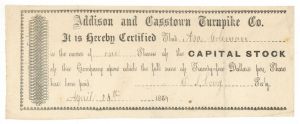 Addison and Casstown Turnpike Co.
It is Hereby Certified That Asa Coleman
is the owner of one Shares of the CAPITAL STOCK
of this Company upon which the full sum of Twenty-five Dollars per Share
has been paid. Sec'y.
April 28th 186